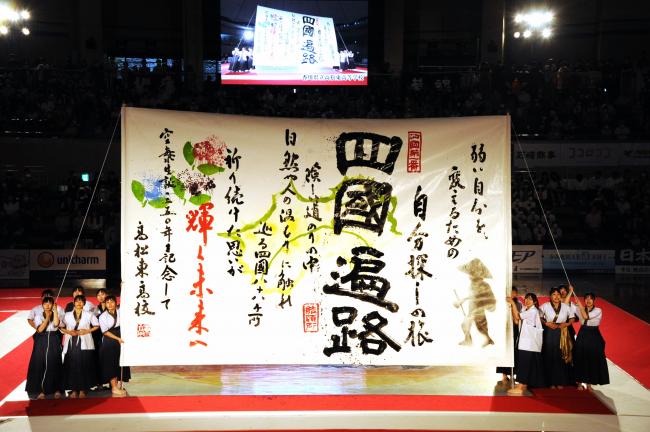 四國遍路
香川県立高松東高等学校
弱い自分を、
変えるための
自分探しの旅
四國遍路
険しい道のりの中
自然や人の温もりに触れ
巡る四國八十八ヶ所
祈り続けた思いが
輝く未来へ
空海生誕一二五〇年を記念して
高松東高校
unicharm
日本